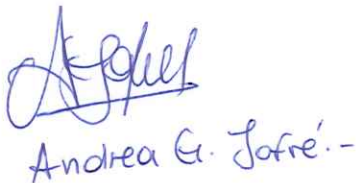 Andrea G. Jofré.-